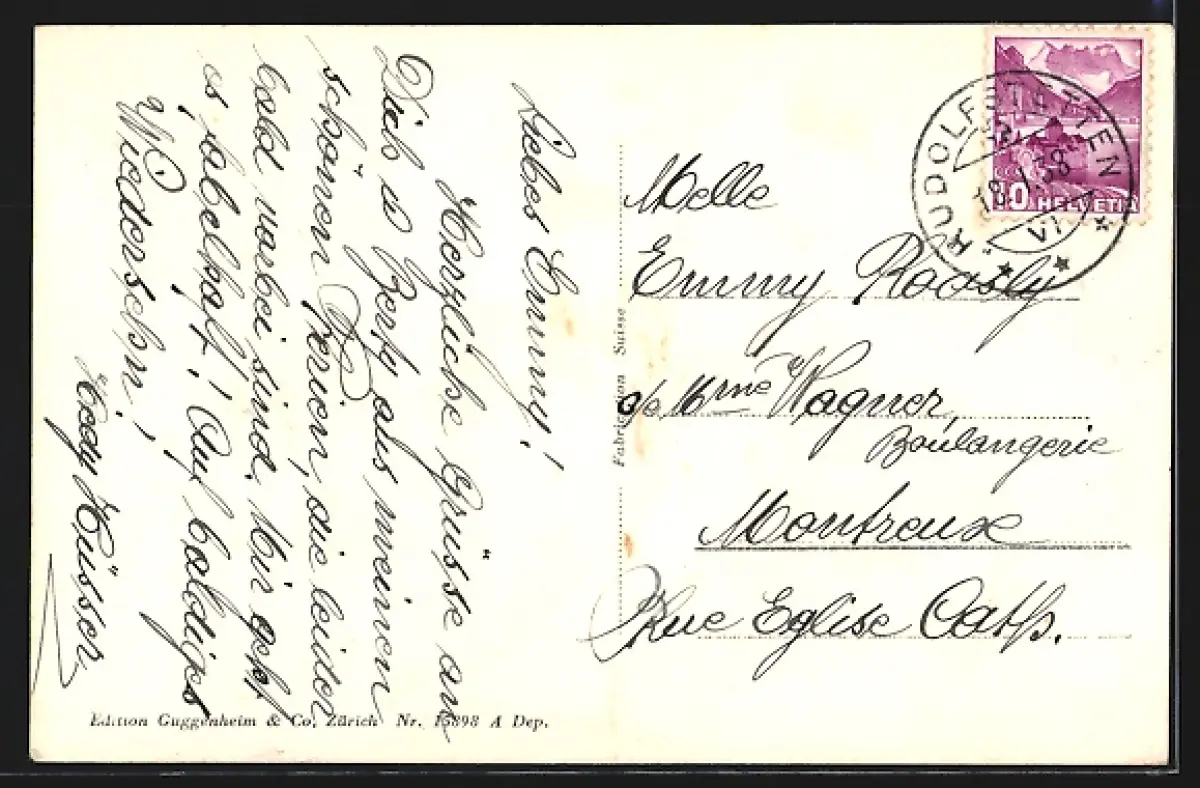 Liebes Emmy!
Herzliche Grüsse an
Dich u Berty aus meinen
schönen Ferien, die leider
bald vorbei sind. Mir geht
es fabelhaft! Auf baldiges
Wiedersehn!
Hedy Hüsser
Edition Guggenheim & Co, Zürich Nr. 15898 A Dep.
Fabrication Suisse
RUDOLFSTETTEN
18.1.38
VI
10 HELVETIA
Melle
Emmy Roosly
c/o Mme Wagner,
Boulangerie
Montreux
Rue Eglise Cath.